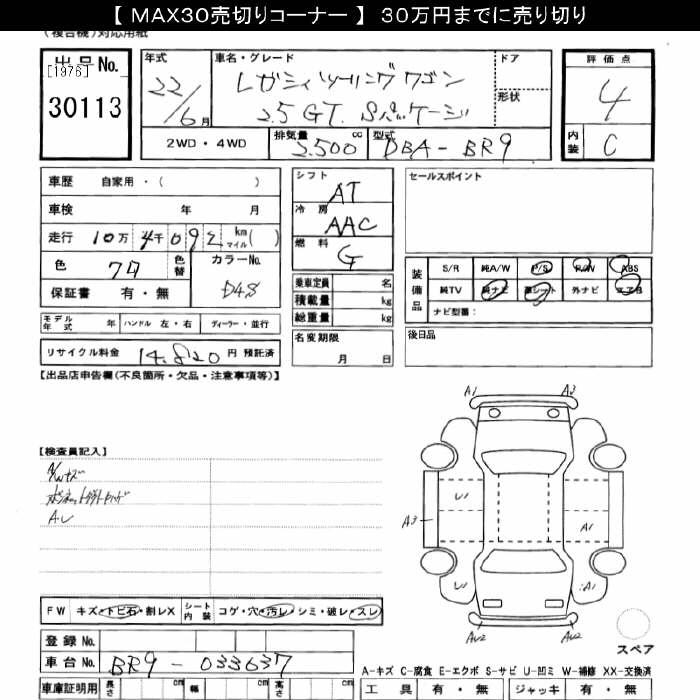 【 MAX30売切りコーナー 】 30万円までに売り切り
(複合機)対応用紙
出品No.
[1976]
30113
年式
22/6月
車名・グレード
レガシィツーリングワゴン
2.5 GT. Sパッケージ
ドア
形状
評価点
4
内装
C
2WD・4WD
排気量
2.500 cc
型式
DBA-BR9
車歴 自家用・( )
車検 年 月
走行 10万 4千 092 km マイル( )
色 クロ 色替
カラーNo.
D4S
保証書 有・無
シフト
AT
冷房
AAC
燃料
G
乗車定員 名
積載量 kg
総重量 kg
セールスポイント
装備品
S/R 純A/W P/S P/W ABS
純TV 純ナビ 革シート 外ナビ エアB
ナビ型番:
モデル年式 年 ハンドル 左・右 ディーラー・並行
名変期限
月 日
後日品
リサイクル料金 14.820円 預託済
【出品店申告欄(不良箇所・欠品・注意事項等)】
【検査員記入】
A/Wキズ
AU
A1 A3
U1
A3
A1
U1 A1
AU2 AU2
FW キズ・トビ石・割レX シート内装 コゲ・穴・汚レ・シミ・破レ・スレ
登録No.
車台No. BR9-033637
スペア
A-キズ C-腐食 E-エクボ S-サビ U-凹ミ W-補修 XX-交換済
車庫証明用 長さ cm 幅 cm 高さ cm
工具 有・無 ジャッキ 有・無